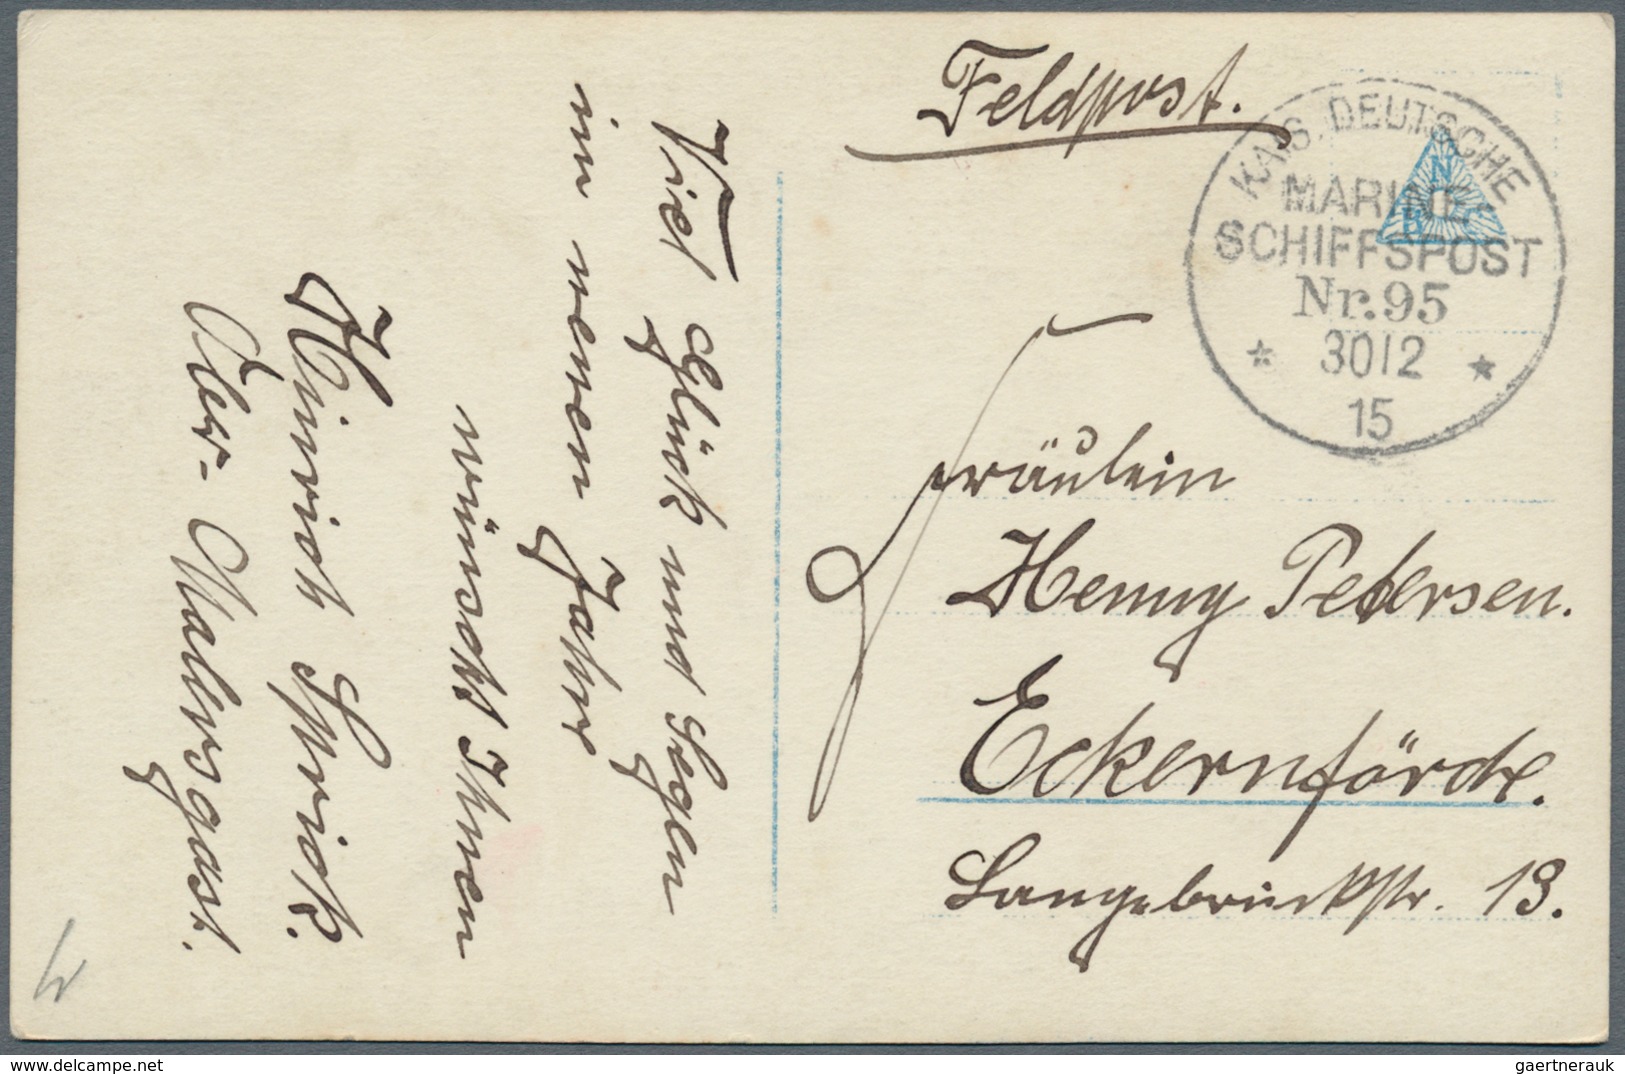 Feldpost.
KAIS. DEUTSCHE
MARINE-
SCHIFFSPOST
Nr. 95
30/2
15
N
B G
Fräulein
Henny Petersen.
Eckernförde.
Langebrückstr. 13.
Viel Glück und Segen
im neuen Jahre
wünscht Ihnen
Hinrich
Ober-Malersgast.
www.delcampe.net
gaertnerauk